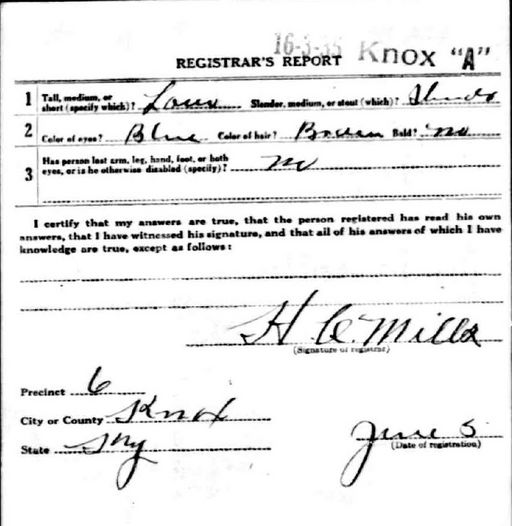 16-3-35 Knox "A"
REGISTRAR'S REPORT
1 Tall, medium, or short (specify which)? Slender, medium, or stout (which)? Slender
2 Color of eyes? Blue Color of hair? Brown Bald? no
3 Has person lost arm, leg, hand, foot, or both eyes, or is he otherwise disabled (specify)? no
I certify that my answers are true, that the person registered has read his own
answers, that I have witnessed his signature, and that all of his answers of which I have
knowledge are true, except as follows:
H C. Mills
(Signature of registrar)
Precinct 6
City or County Knox
State Ky
June 5
(Date of registration)